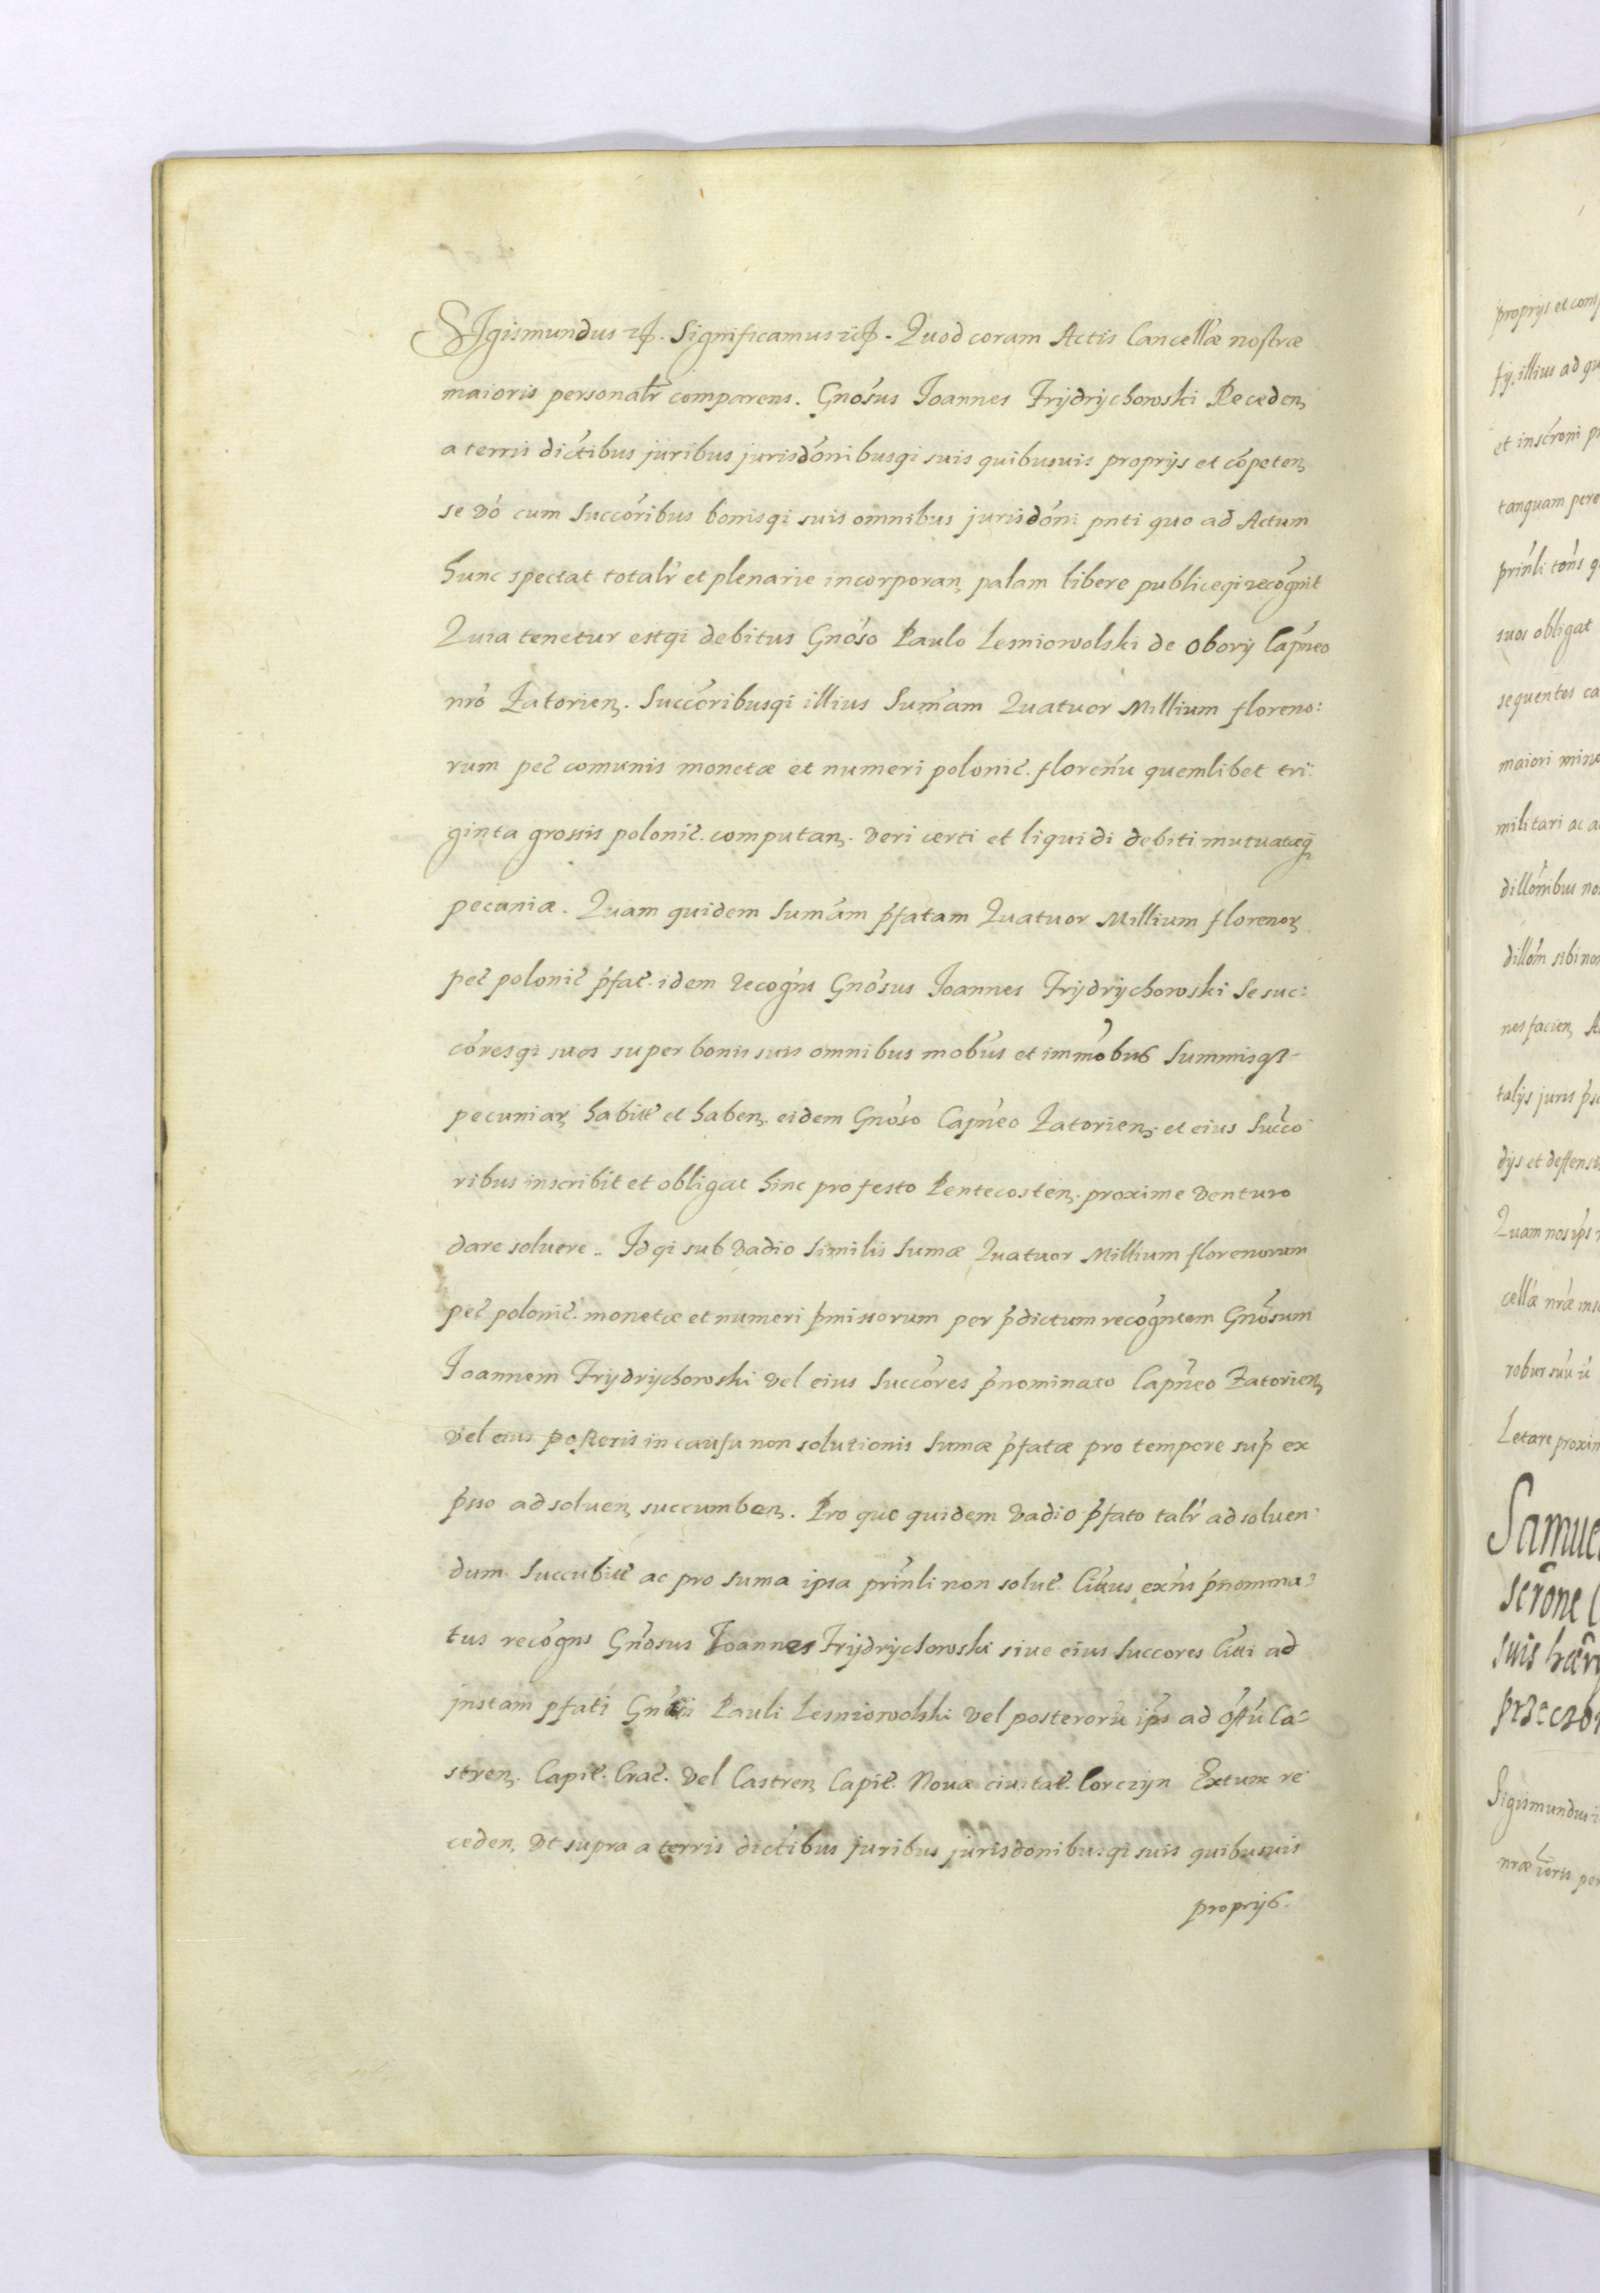 SIgismundus etc. Significamus etc. Quod coram Actis Cancellæ nostræ
maioris personalr comparens. Gnosus Joannes Frÿdrÿchowski Receden,
a terris dictibus juribus jurisdonibusqi suis quibusuis proprÿs et copeten,
se vo cum Succoribus bonisqi suis omnibus jurisdoni pnti quo ad Actum
hunc spectat totalr et plenarie incorporan, palam libere publiceqi recognit
Quia tenetur estqi debitus Gnoso Paulo Lesniowolski de Oborÿ Capneo
nro Zatorien. Succoribusqi illius Sumam Quatuor Millium floreno:
rum pec comunis monetæ et numeri polonic. florenu quemlibet tri:
ginta grossis polonic. computan. veri certi et liquidi debiti mutuatæq
pecuniæ. Quam quidem Sumam pfatam Quatuor Millium florenor
pec polonic pfat. idem recogns Gnosus Joannes Frÿdrÿchowski Se suc:
coresqi suos super bonis suis omnibus mobus et immobus Summisqi
pecuniar habit et haben. eidem Gnoso Capneo Zatorien. et eius Succo
ribus inscribit et obligat hinc pro festo Pentecosten. proxime venturo
dare soluere. Idqi sub vadio Similis Sumæ Quatuor Millium florenorum
pec polonic. monetæ et numeri pmissorum per pdictum recogntem Gnosum
Joannem Frÿdrÿchowski vel eius Succores pnominato Capneo Zatorien,
vel eius posteris in causu non solutionis Sumæ pfatæ pro tempore sup ex
psso ad soluen, succumben. Pro quo quidem vadio pfato talr ad soluen
dum Succubit ac pro Suma ipsa prinli non solut. Citus exns pnomina:
tus recogns Gnosus Joannes Frÿdrÿchowski siue eius Succores Citi ad
jnstam pfati Gnosi Pauli Lesniowolski vel posteroru ips ad offu Ca:
stren. Capit. Crac. vel Castren, Capit. Noua ciuitat. Corczÿn Extunc re
ceden, vt supra a terris dictibus juribus jurisdonibusqi suis quibusuis
proprÿs.
proprÿs et
fÿ. illius ad
et inscroni
tanquam
prinli
suos obligat
sequentes
maiori
militari ac
dillonibus
dillom sibi
nos facien,
talÿs juris
dÿs et
Quam nos
cellæ nræ
robur suu
Letare
Samuel
scrone
suis
Sigismundus
nræ